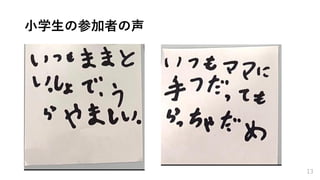 小学生の参加者の声
いつもままと
いっしょで、う
らやましい。
いつもママに
手つだっても
らっちゃだめ
13